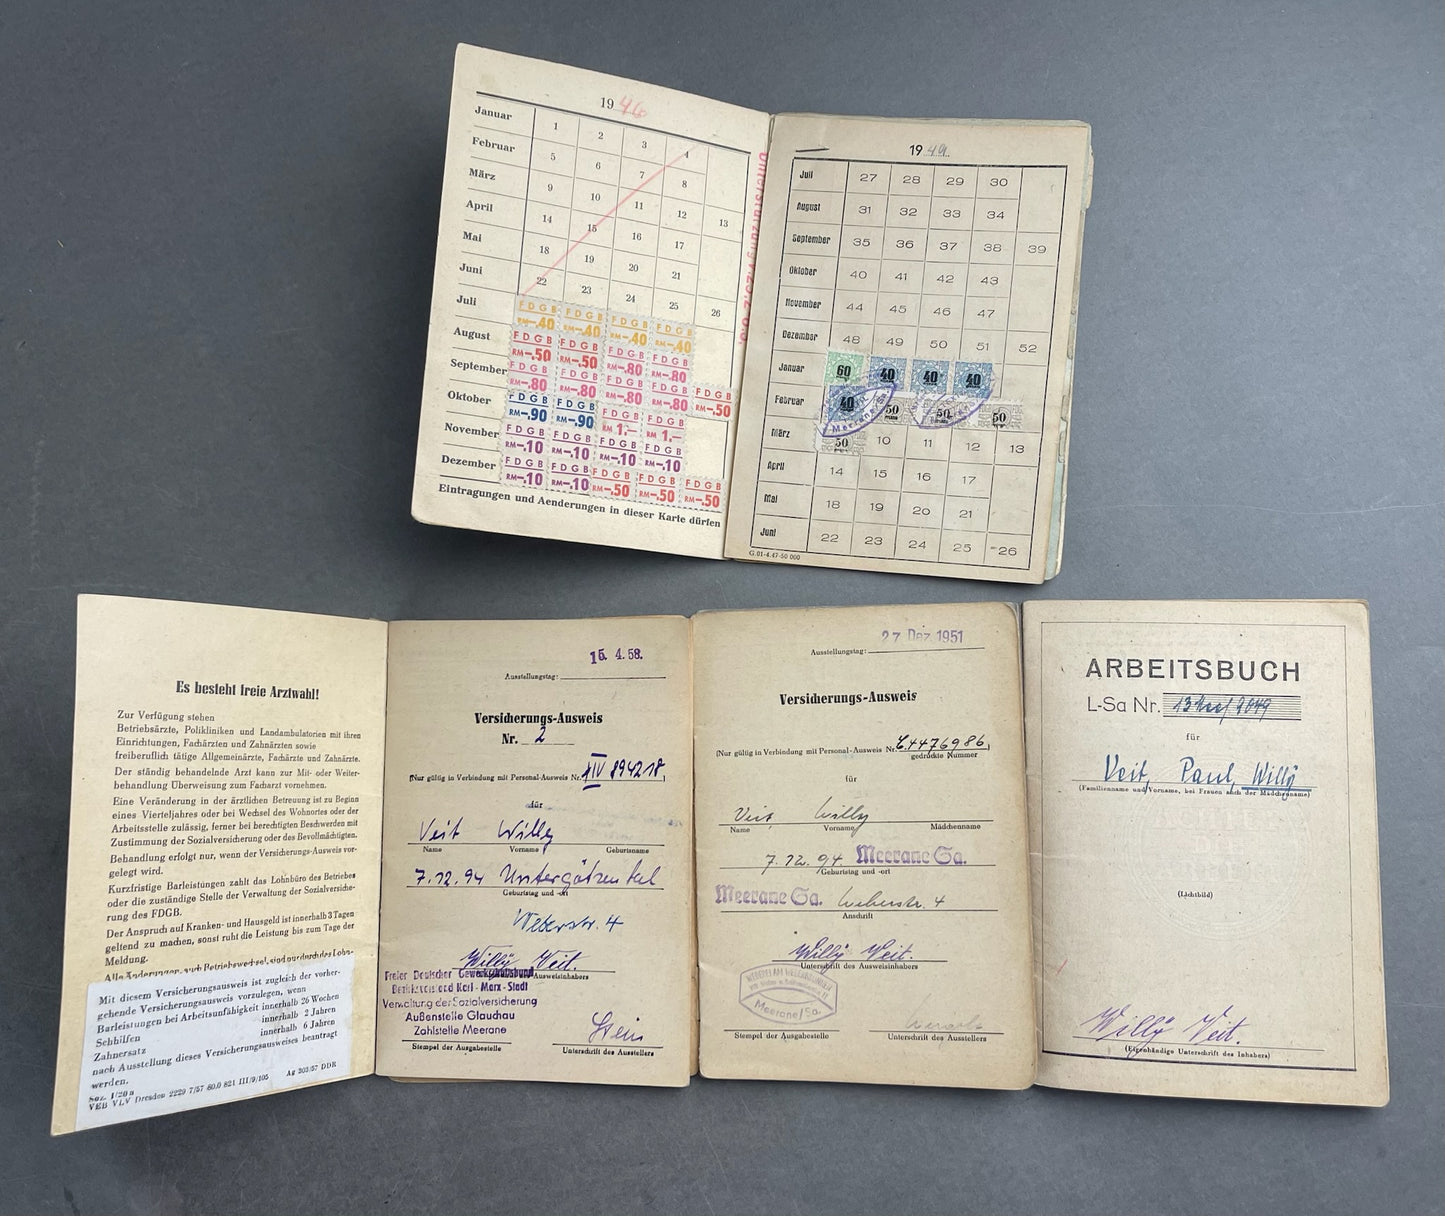 1946
Januar 1 2 3 4
Februar 5 6 7 8
März 9 10 11 12 13
April 14 15 16 17
Mai 18 19 20 21
Juni 22 23 24 25 26
Juli FDGB RM -.40 FDGB -.40 FDGB RM -.40 FDGB RM -.40
August FDGB RM -.50 FDGB RM -.50 FDGB RM -.80 FDGB RM -.80
September FDGB RM -.80 FDGB RM -.80 FDGB RM -.80 FDGB RM -.80 FDGB RM -.50
Oktober FDGB RM -.90 FDGB RM -.90 FDGB RM 1.— FDGB RM 1.—
November FDGB RM -.10 FDGB RM -.10 FDGB RM -.10 FDGB RM -.10
Dezember FDGB RM -.10 FDGB RM -.10 FDGB RM -.50 FDGB RM -.50 FDGB RM -.50
Eintragungen und Aenderungen in dieser Karte dürfen
1949
Juli 27 28 29 30
August 31 32 33 34
September 35 36 37 38 39
Oktober 40 41 42 43
November 44 45 46 47
Dezember 48 49 50 51 52
Januar 60 40 40 40
Februar 40 50 50 50
März 50 10 11 12 13
April 14 15 16 17
Mai 18 19 20 21
Juni 22 23 24 25 26
Meerane
G.01-4.47-50 000
Es besteht freie Arztwahl!
Zur Verfügung stehen
Betriebsärzte, Polikliniken und Landambulatorien mit ihren
Einrichtungen, Fachärzten und Zahnärzten sowie
freiberuflich tätige Allgemeinärzte, Fachärzte und Zahnärzte.
Der ständig behandelnde Arzt kann zur Mit- oder Weiter-
behandlung Überweisung zum Facharzt vornehmen.
Eine Veränderung in der ärztlichen Betreuung ist zu Beginn
eines Vierteljahres oder bei Wechsel des Wohnortes oder der
Arbeitsstelle zulässig, ferner bei berechtigten Beschwerden mit
Zustimmung der Sozialversicherung oder des Bevollmächtigten.
Behandlung erfolgt nur, wenn der Versicherungs-Ausweis vor-
gelegt wird.
Kurzfristige Barleistungen zahlt das Lohnbüro des Betriebes
oder die zuständige Stelle der Verwaltung der Sozialversiche-
rung des FDGB.
Der Anspruch auf Kranken- und Hausgeld ist innerhalb 3 Tagen
geltend zu machen, sonst ruht die Leistung bis zum Tage der
Meldung.
Mit diesem Versicherungsausweis ist zugleich der vorher-
gehende Versicherungsausweis vorzulegen, wenn
Barleistungen bei Arbeitsunfähigkeit innerhalb 26 Wochen
Sehhilfen innerhalb 2 Jahren
Zahnersatz innerhalb 6 Jahren
nach Ausstellung dieses Versicherungsausweises beantragt
werden.
Soz. 1/20 a
VEB VLV Dresden 2229 7/57 80,0 821 III/9/105 Ag 303/57 DDR
15. 4. 58.
Ausstellungstag:
Versicherungs-Ausweis
Nr. 2
(Nur gültig in Verbindung mit Personal-Ausweis Nr. XIV 894218)
für
Veit Willy
Name Vorname Geburtsname
7.12.94 Untergötzenthal
Geburtstag und -ort
Weberstr. 4
Willy Veit.
Unterschrift des Ausweisinhabers
Freier Deutscher Gewerkschaftsbund
Bezirksvorstand Karl-Marx-Stadt
Verwaltung der Sozialversicherung
Außenstelle Glauchau
Zahlstelle Meerane
Stempel der Ausgabestelle Unterschrift des Ausstellers
27 Dez 1951
Ausstellungstag:
Versicherungs-Ausweis
(Nur gültig in Verbindung mit Personal-Ausweis Nr. C.4476986)
gedruckte Nummer
für
Veit Willy
Name Vorname Mädchenname
7.12.94. Meerane Sa.
Geburtstag und -ort
Meerane Sa. Weberstr. 4
Anschrift
Willy Veit.
Unterschrift des Ausweisinhabers
Meerane/Sa.
Stempel der Ausgabestelle Unterschrift des Ausstellers
ARBEITSBUCH
L-Sa Nr.
für
Veit, Paul, Willy
(Familienname und Vorname, bei Frauen auch der Mädchenname)
(Lichtbild)
Willy Veit.
(Eigenhändige Unterschrift des Inhabers)